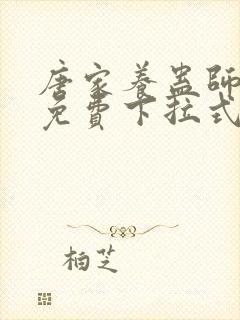 唐家養蠱師
免費下拉式
柏芝